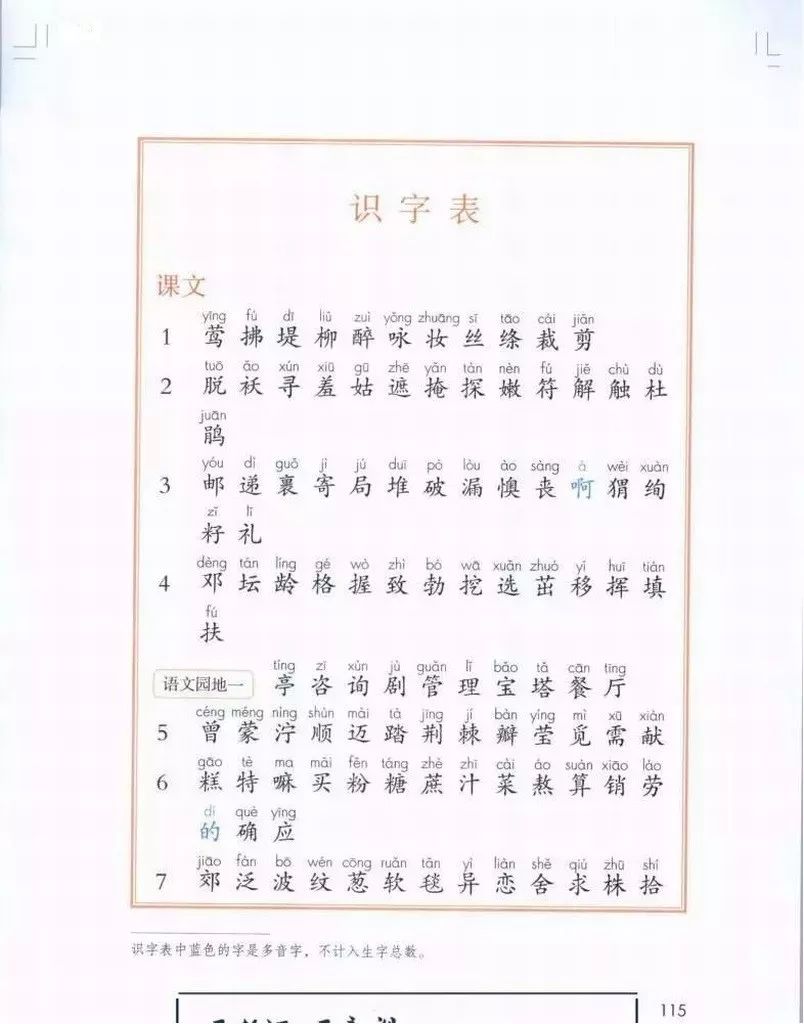 识字表
课文
yīng fú dī liǔ zuì yǒng zhuāng sī tāo cái jiǎn
1 莺 拂 堤 柳 醉 咏 妆 丝 绦 裁 剪
tuō ǎo xún xiū gū zhē yǎn tàn nèn fú jiě chù dù
2 脱 袄 寻 羞 姑 遮 掩 探 嫩 符 解 触 杜
juān
鹃
yóu dì guǒ jì jú duī pò lòu ào sàng à wèi xuàn
3 邮 递 裹 寄 局 堆 破 漏 懊 丧 啊 猬 绚
zǐ lǐ
籽 礼
dèng tán líng gé wò zhì bó wā xuǎn zhuó yí huī tián
4 邓 坛 龄 格 握 致 勃 挖 选 茁 移 挥 填
fú
扶
tíng zī xún jù guǎn lǐ bǎo tǎ cān tīng
语文园地一 亭 咨 询 剧 管 理 宝 塔 餐 厅
céng méng nìng shùn mài tà jīng jí bàn yíng mì xū xiàn
5 曾 蒙 泞 顺 迈 踏 荆 棘 瓣 莹 觅 需 献
gāo tè ma mǎi fěn táng zhè zhī cài áo suàn xiāo láo
6 糕 特 嘛 买 粉 糖 蔗 汁 菜 熬 算 销 劳
dí què yīng
的 确 应
jiāo fàn bō wén cōng ruǎn tǎn yì liàn shě qiú zhū shí
7 郊 泛 波 纹 葱 软 毯 异 恋 舍 求 株 拾
识字表中蓝色的字是多音字，不计入生字总数。
115